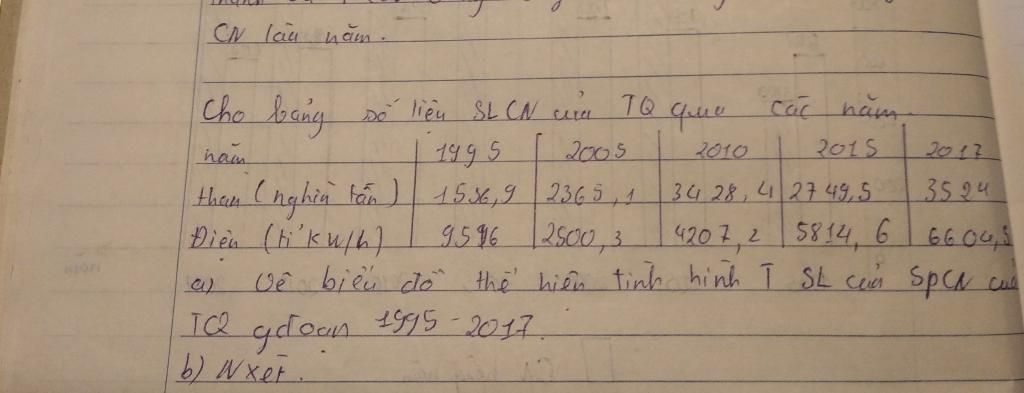 CN lâu năm.
Cho bảng số liệu SLCN của TQ qua các năm.
năm 1995 2005 2010 2015 2017
than (nghìn tấn) 1536,9 2365,1 3428,4 2749,5 3524
Điện (tỉ kW/h) 9596 2500,3 4207,2 5814,6 6604,5
a) Vẽ biểu đồ thể hiện tình hình T SL của SpCN của
TQ gđoạn 1995-2017.
b) Nxét.